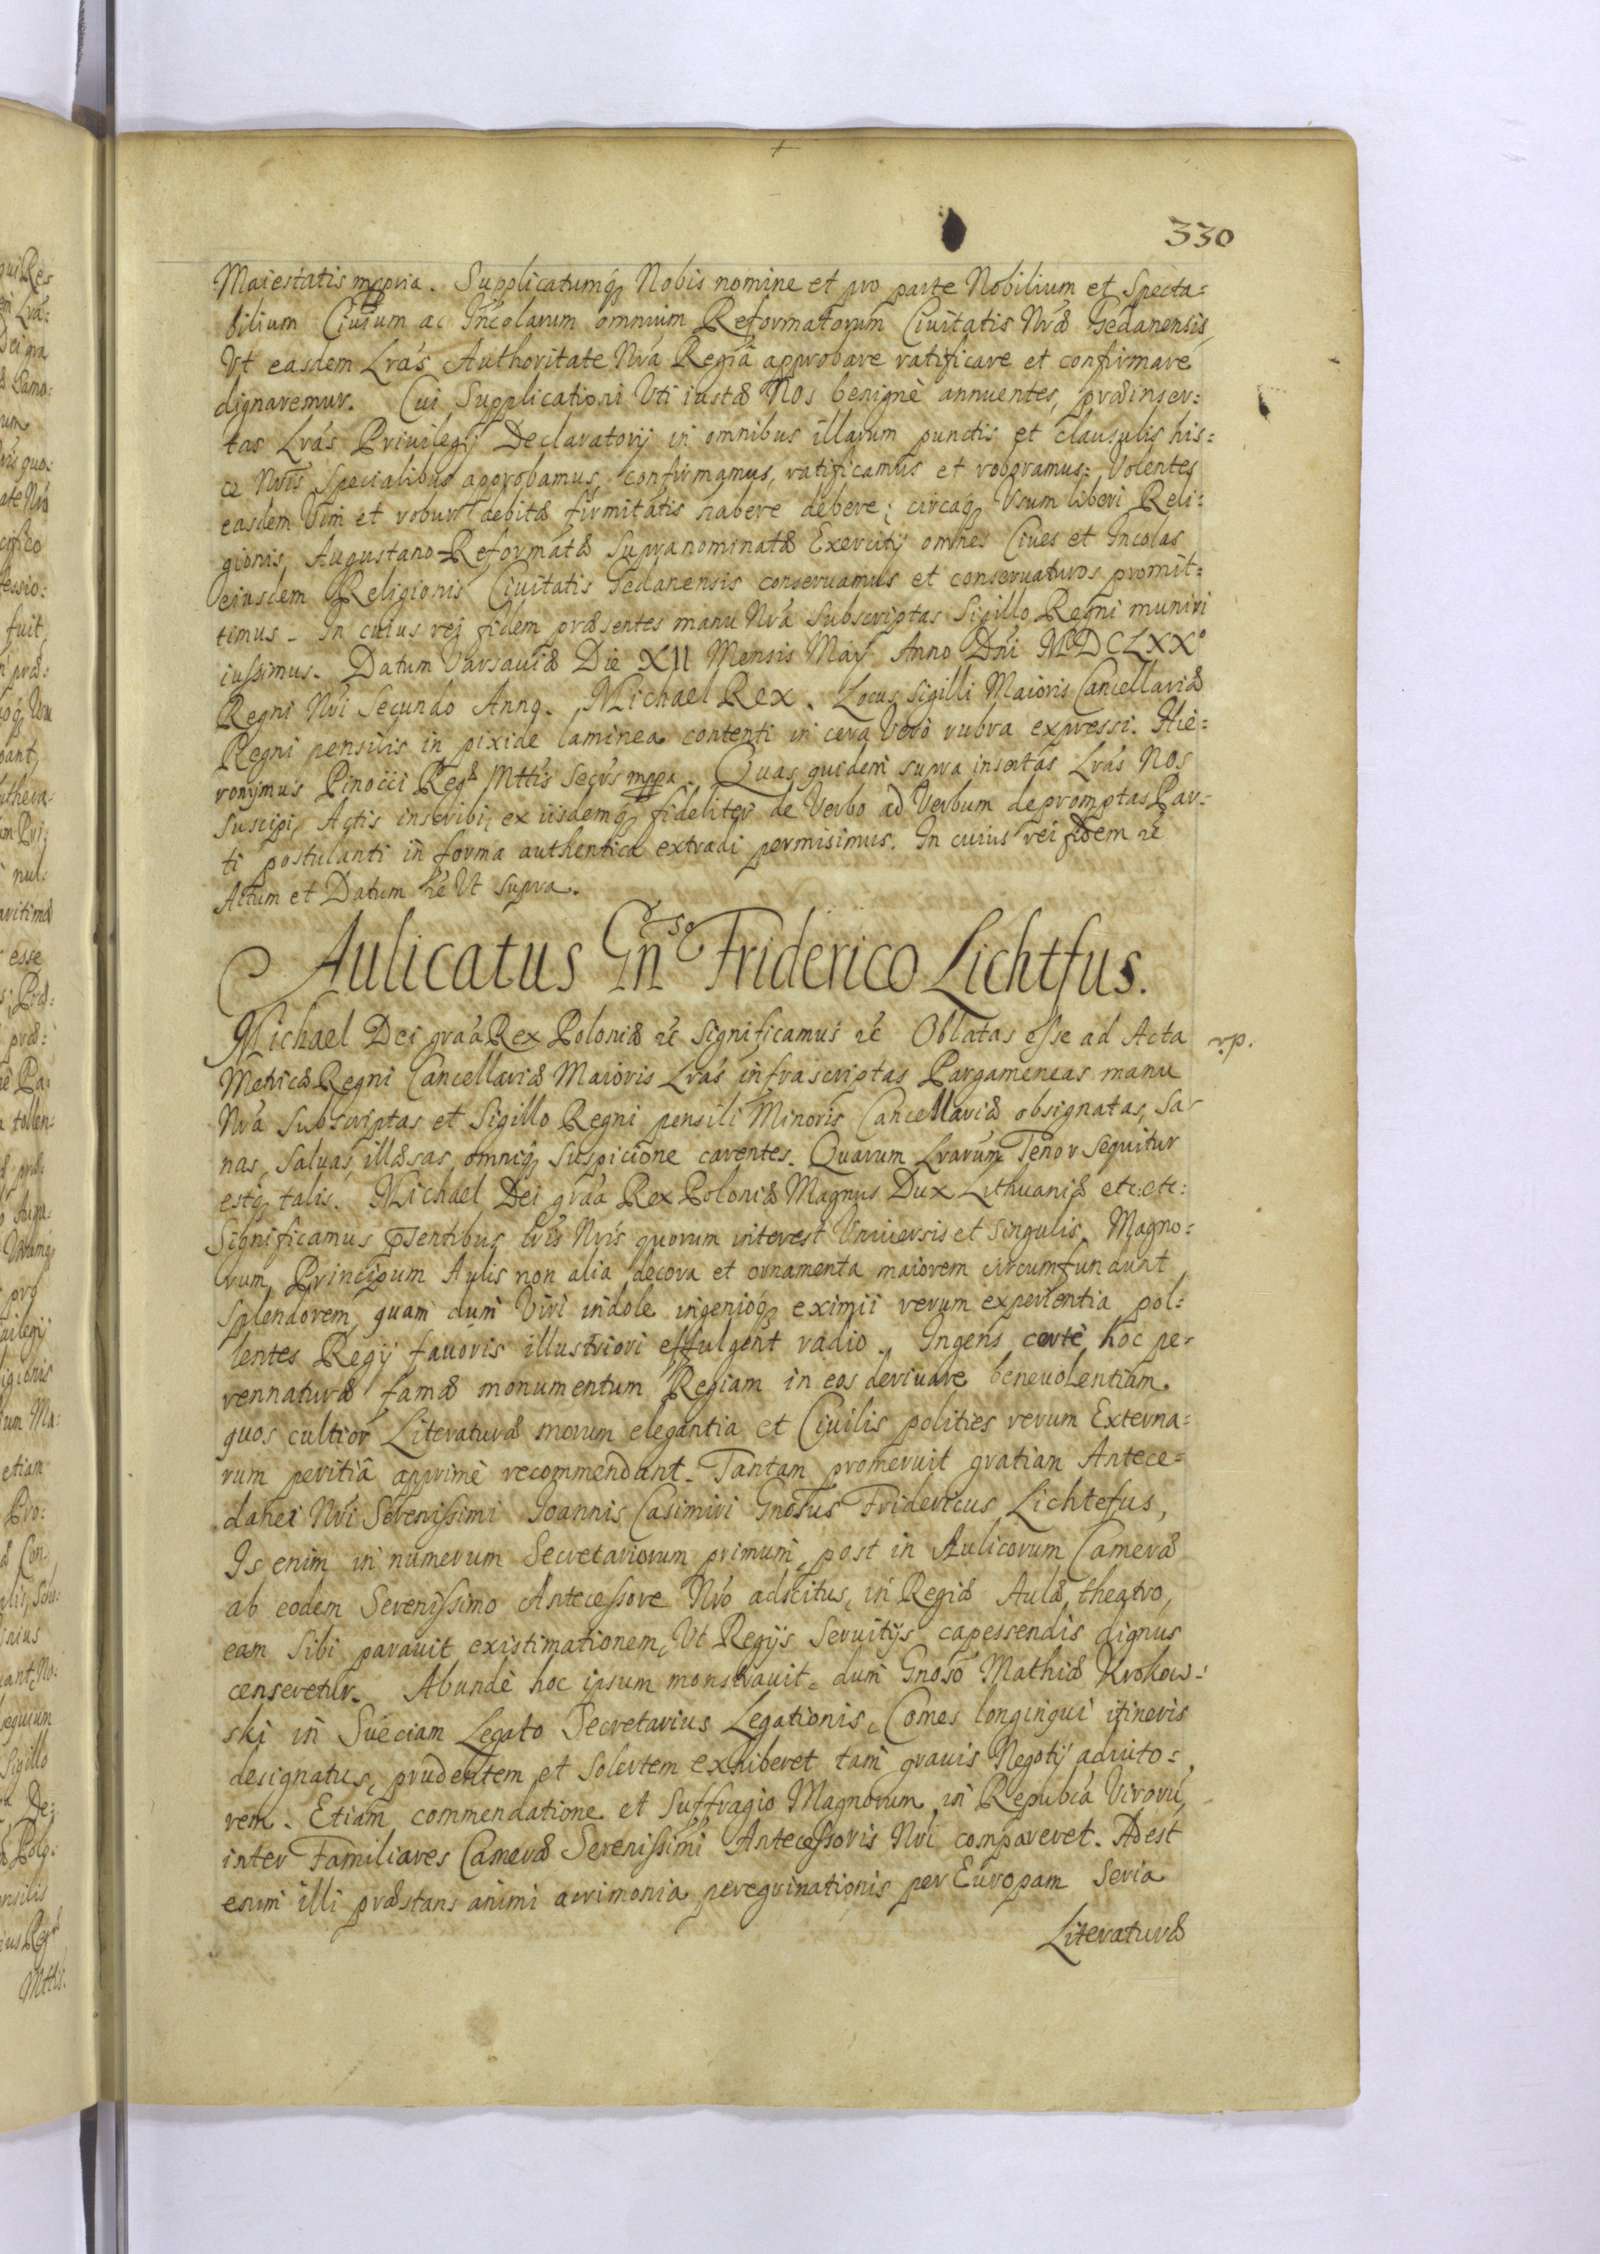 330
Maiestatis mppria. Supplicatumq Nobis nomine et pro parte Nobilium et Specta=
bilium Ciuium ac Incolarum omnium Reformatorum Ciuitatis Nræ Gedanensis,
Vt easdem Lras Authoritate Nra Regiâ approbare ratificare et confirmare
dignaremur. Cui Supplicationi Vti iustæ Nos benignè annuentes, præinser=
tas Lras Priuilegij Declaratorij in omnibus illarum punctis et clausulis his=
ce Nris Specialibus approbamus, confirmamus, ratificamus et roboramus: Volentes
easdem Vim et robur debitæ firmitatis habere debere; circaq Vsum liberi Reli=
gionis Augustano-Reformatæ Supranominatæ Exercitij omnes Ciues et Incolas
eiusdem Religionis Ciuitatis Gedanensis conseruamus et conseruaturos promit=
timus. In cuius rei fidem præsentes manu Nra Subscriptas Sigillo Regni muniri
iussimus. Datum Varsauiæ Die XII Mensis Maij Anno Dni MDCLXX°
Regni Nri Secundo Anno. Michael Rex. Locus Sigilli Maioris Cancellariæ
Regni pensilis in pixide laminea contenti in cera Verò rubra expressi. Hie=
ronymus Pinocci Regæ Mttis Secrs mppa. Quas quidem supra insertas Lras Nos
Suscipi, Actis inscribi, ex iisdemq fideliter de Verbo ad Verbum depromptas Par=
ti postulanti in forma authentica extradi permisimus. In cuius rei fidem ꝛc
Actum et Datum ꝛc Vt supra.
Aulicatus Gnso Friderico Lichtfus.
Michael Dei graa Rex Poloniæ ꝛc Significamus ꝛc Oblatas esse ad Acta
rp.
Metricæ Regni Cancellariæ Maioris Lras infrascriptas Pargameneas manu
Nra Subscriptas et Sigillo Regni pensili Minoris Cancellariæ obsignatas, Sa-
nas, Saluas, illæsas omniq Suspicione carentes. Quarum Lrarum Tenor Sequitur
estq talis. Michael Dei graa Rex Poloniæ Magnus Dux Lithuaniæ etc: etc:
Significamus psentibus Lris Nris quorum interest Vniuersis et Singulis. Magno=
rum Principum Aulis non alia decora et ornamenta maiorem circumfundunt
Splendorem, quam dum Viri indole ingenioq eximii rerum experientia pol=
lentes Regij fauoris illustriori effulgent radio. Ingens certè hoc pe-
rennaturæ famæ monumentum Regiam in eos deriuare beneuolentiam
quos cultior Literaturæ morum elegantia et Ciuilis polities rerum Externa=
rum peritiâ apprimè recommendant. Tantam promeruit gratiam Antece=
danei Nri Serenissimi Ioannis Casimiri Gnosus Fridericus Lichtefus,
Is enim in numerum Secretariorum primum, post in Aulicorum Cameræ
ab eodem Serenissimo Antecessore Nro adscitus, in Regiæ Aulæ theatro,
eam Sibi parauit existimationem, Vt Regijs Seruitijs capessendis dignus
censeretur. Abundè hoc ipsum monstrauit, dum Gnoso Mathiæ Krokow=
ski in Sueciam Legato Secretarius Legationis, Comes longinqui itineris
designatus, prudentem et Solertem exhiberet tam grauis Negotij adiuto=
rem. Etiam commendatione et Suffragio Magnorum in Republca Virorū
inter Familiares Cameræ Serenissimi Antecessoris Nri compareret. Adest
enim illi præstans animi acrimonia peregrinationis per Europam Seria
Literaturæ